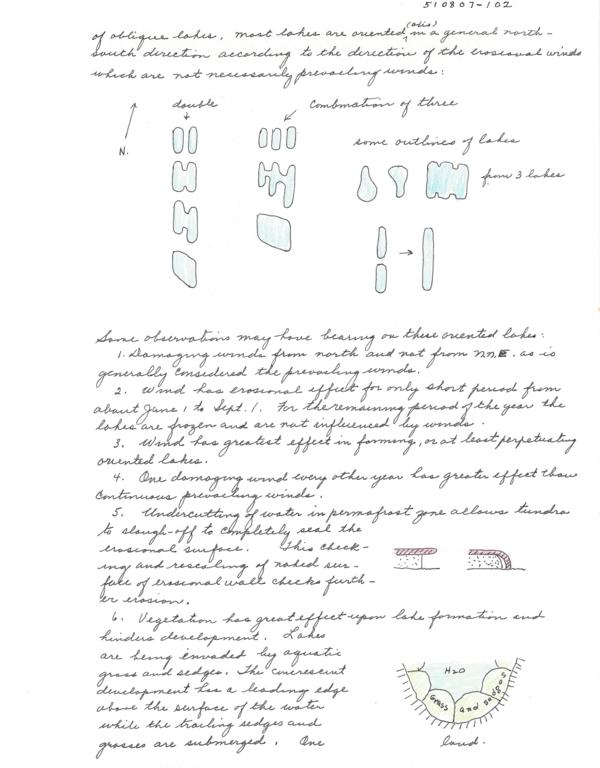 510807-102
of oblique lakes, most lakes are oriented (axis) in a general north-
south direction according to the direction of the erosional winds
which are not necessarily prevailing winds:
double
Combination of three
N.
some outlines of lakes
from 3 lakes
Some observations may have bearing on these oriented lakes:
1. Damaging winds from north and not from NNE. as is
generally considered the prevailing winds.
2. Wind has erosional effect for only short period from
about June 1 to Sept. 1. For the remaining period of the year the
lakes are frozen and are not influenced by winds.
3. Wind has greatest effect in forming, or at least perpetuating
oriented lakes.
4. One damaging wind every other year has greater effect than
continuous prevailing winds.
5. Undercutting of water in permafrost zone allows tundra
to slough-off to completely seal the
erosional surface. This check-
ing and resealing of naked sur-
face of erosional wall checks furth-
er erosion.
6. Vegetation has great effect upon lake formation and
hinders development. Lakes
are being invaded by aquatic
grass and sedges. The concrescent
development has a leading edge
above the surface of the water
while the trailing sedges and
grasses are submerged. One
H2O
Grass and sedges
land.